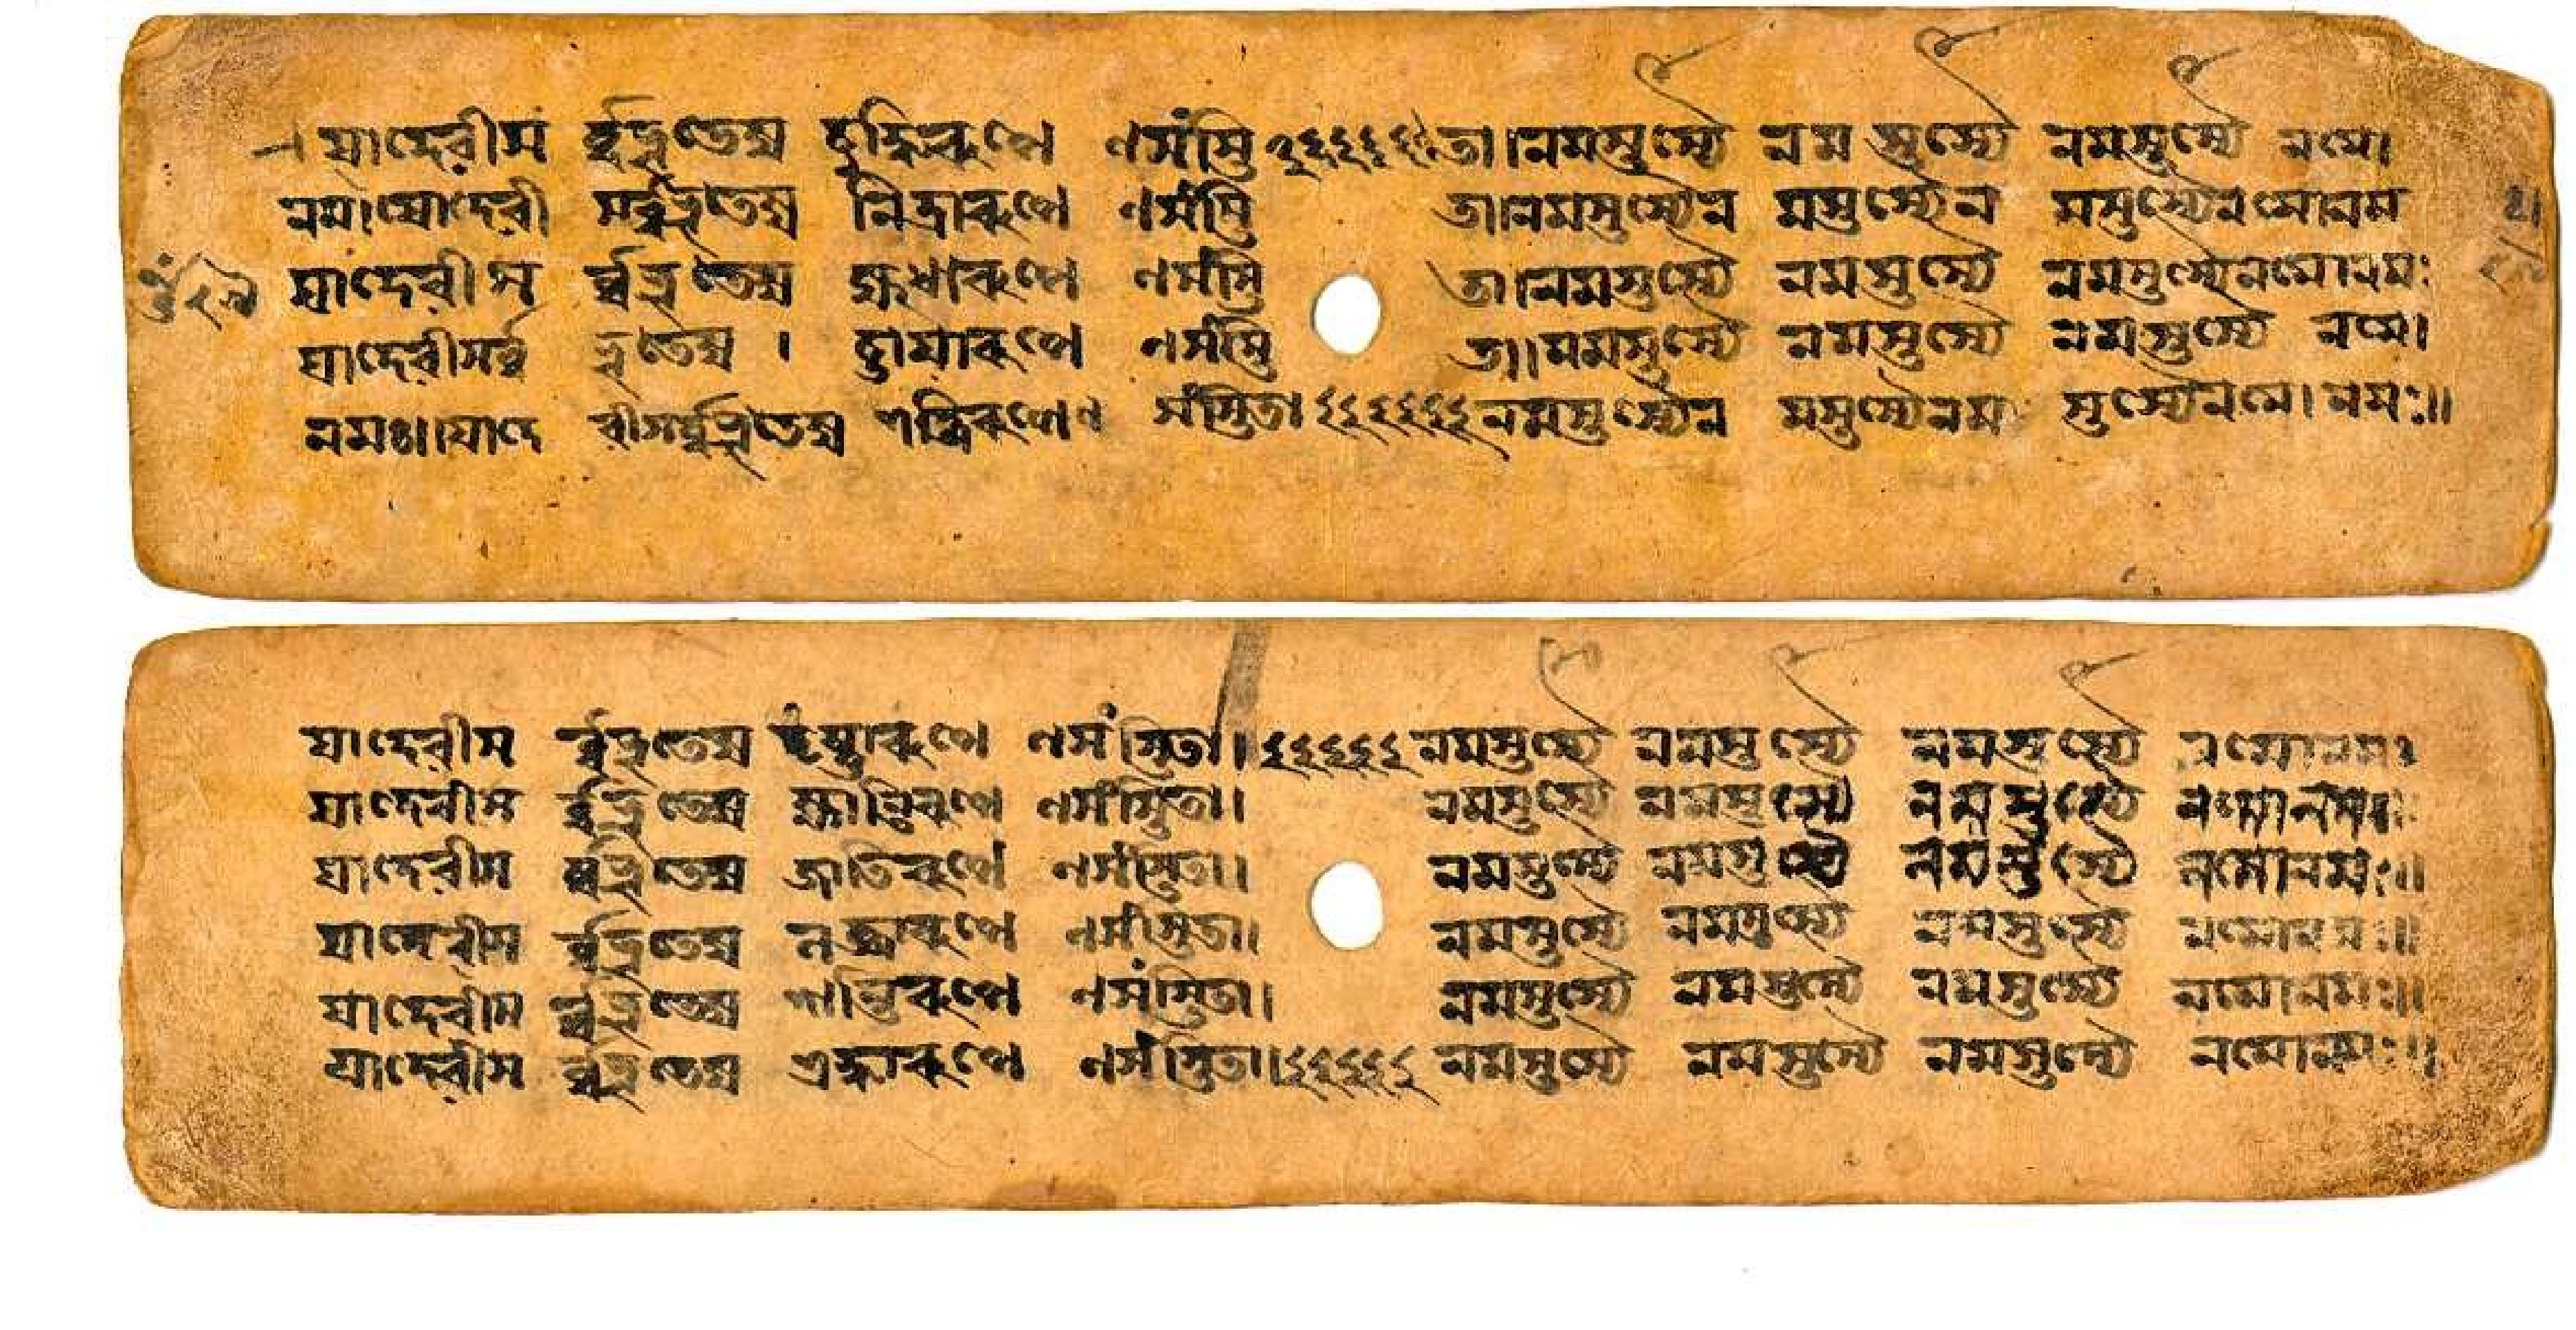 যাদেৱীস র্ব্বভূতেষু বুদ্ধিৰূপে ণসংস্থি তা।নমস্তস্যৈ নমস্তস্যৈ নমস্তস্যৈ নমো
নমঃ।যাদেৱী সর্ব্বভূতেষু নিদ্রাৰূপে ণসংস্থি তা।নমস্তস্যৈন মস্তস্যৈন মস্তস্যৈনমোনম
যাদেৱীস র্ব্বভূতেষু ক্ষুধাৰূপে ণসংস্থি তা।নমস্তস্যৈ নমস্তস্যৈ নমস্তস্যৈনমোনমঃ
যাদেৱীসর্ব্ব ভূতেষু । ছায়াৰূপে ণসংস্থি তা।।নমস্তস্যৈ নমস্তস্যৈ নমস্তস্যৈ নমো
নমঃ।।যাদে ৱীসর্ব্বভূতেষু শক্তিৰূপেণ সংস্থিতা নমস্তস্যৈন মস্তস্যৈনম স্তস্যৈনমো নমঃ॥
যাদেৱীস র্ব্বভূতেষু তৃষ্ণাৰূপে ণসংস্থিতা। নমস্তস্যৈ নমস্তস্যৈ নমস্তস্যৈ নমোনমঃ
যাদেৱীস র্ব্বভূতেষু ক্ষান্তিৰূপে ণসংস্থিতা। নমস্তস্যৈ নমস্তস্যৈ নমস্তস্যৈ নমোনমঃ
যাদেৱীস র্ব্বভূতেষু জাতিৰূপে ণসংস্থিতা। নমস্তস্যৈ নমস্তস্যৈ নমস্তস্যৈ নমোনমঃ॥
যাদেৱীস র্ব্বভূতেষু লজ্জাৰূপে ণসংস্থিতা। নমস্তস্যৈ নমস্তস্যৈ নমস্তস্যৈ নমোনমঃ॥
যাদেৱীস র্ব্বভূতেষু শান্তিৰূপে ণসংস্থিতা। নমস্তস্যৈ নমস্তস্যৈ নমস্তস্যৈ নমোনমঃ॥
যাদেৱীস র্ব্বভূতেষু শ্রদ্ধাৰূপে ণসংস্থিতা। নমস্তস্যৈ নমস্তস্যৈ নমস্তস্যৈ নমোনমঃ॥